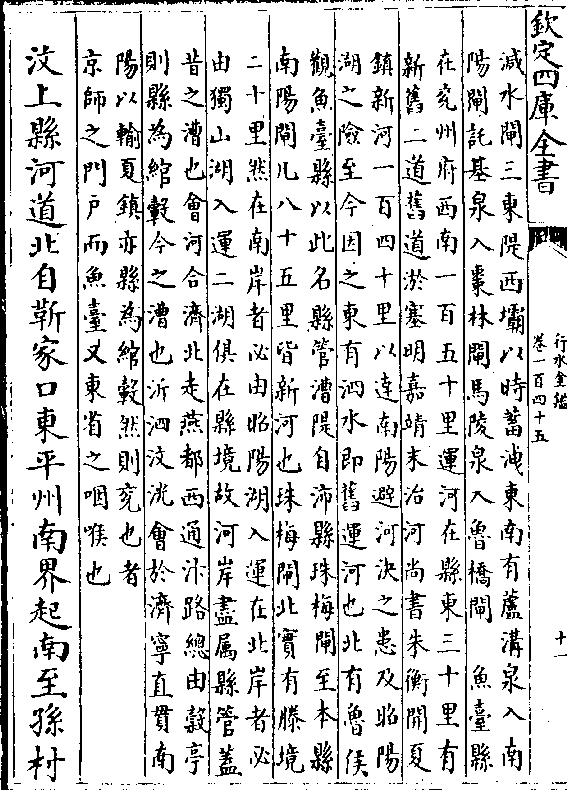 欽定四庫全書
行水金鑑
卷一百四十五
十一
減水閘三東隄西壩以時蓄洩東南有蘆溝泉入南
陽閘託基泉入棗林閘馬陵泉入魯橋閘　魚臺縣
在兗州府西南一百五十里運河在縣東三十里有
新舊二道舊道淤塞明嘉靖末治河尚書朱衡開夏
鎮新河一百四十里以達南陽避河決之患及昭陽
湖之險至今因之東有泗水即舊運河也北有魯侯
觀魚臺縣以此名縣管漕隄自沛縣珠梅閘至本縣
南陽閘凡八十五里皆新河也珠梅閘北實有滕境
二十里然在南岸者必由昭陽湖入運在北岸者必
由獨山湖入運二湖俱在縣境故河岸盡屬縣管蓋
昔之漕也會河合濟北走燕都西通汴路總由穀亭
則縣為綰轂今之漕也沂泗汶洸會於濟寧直貫南
陽以輸夏鎮亦縣為綰轂然則兗也者
京師之門戶而魚臺又東省之咽喉也
汶上縣河道北自靳家口東平州南界起南至孫村